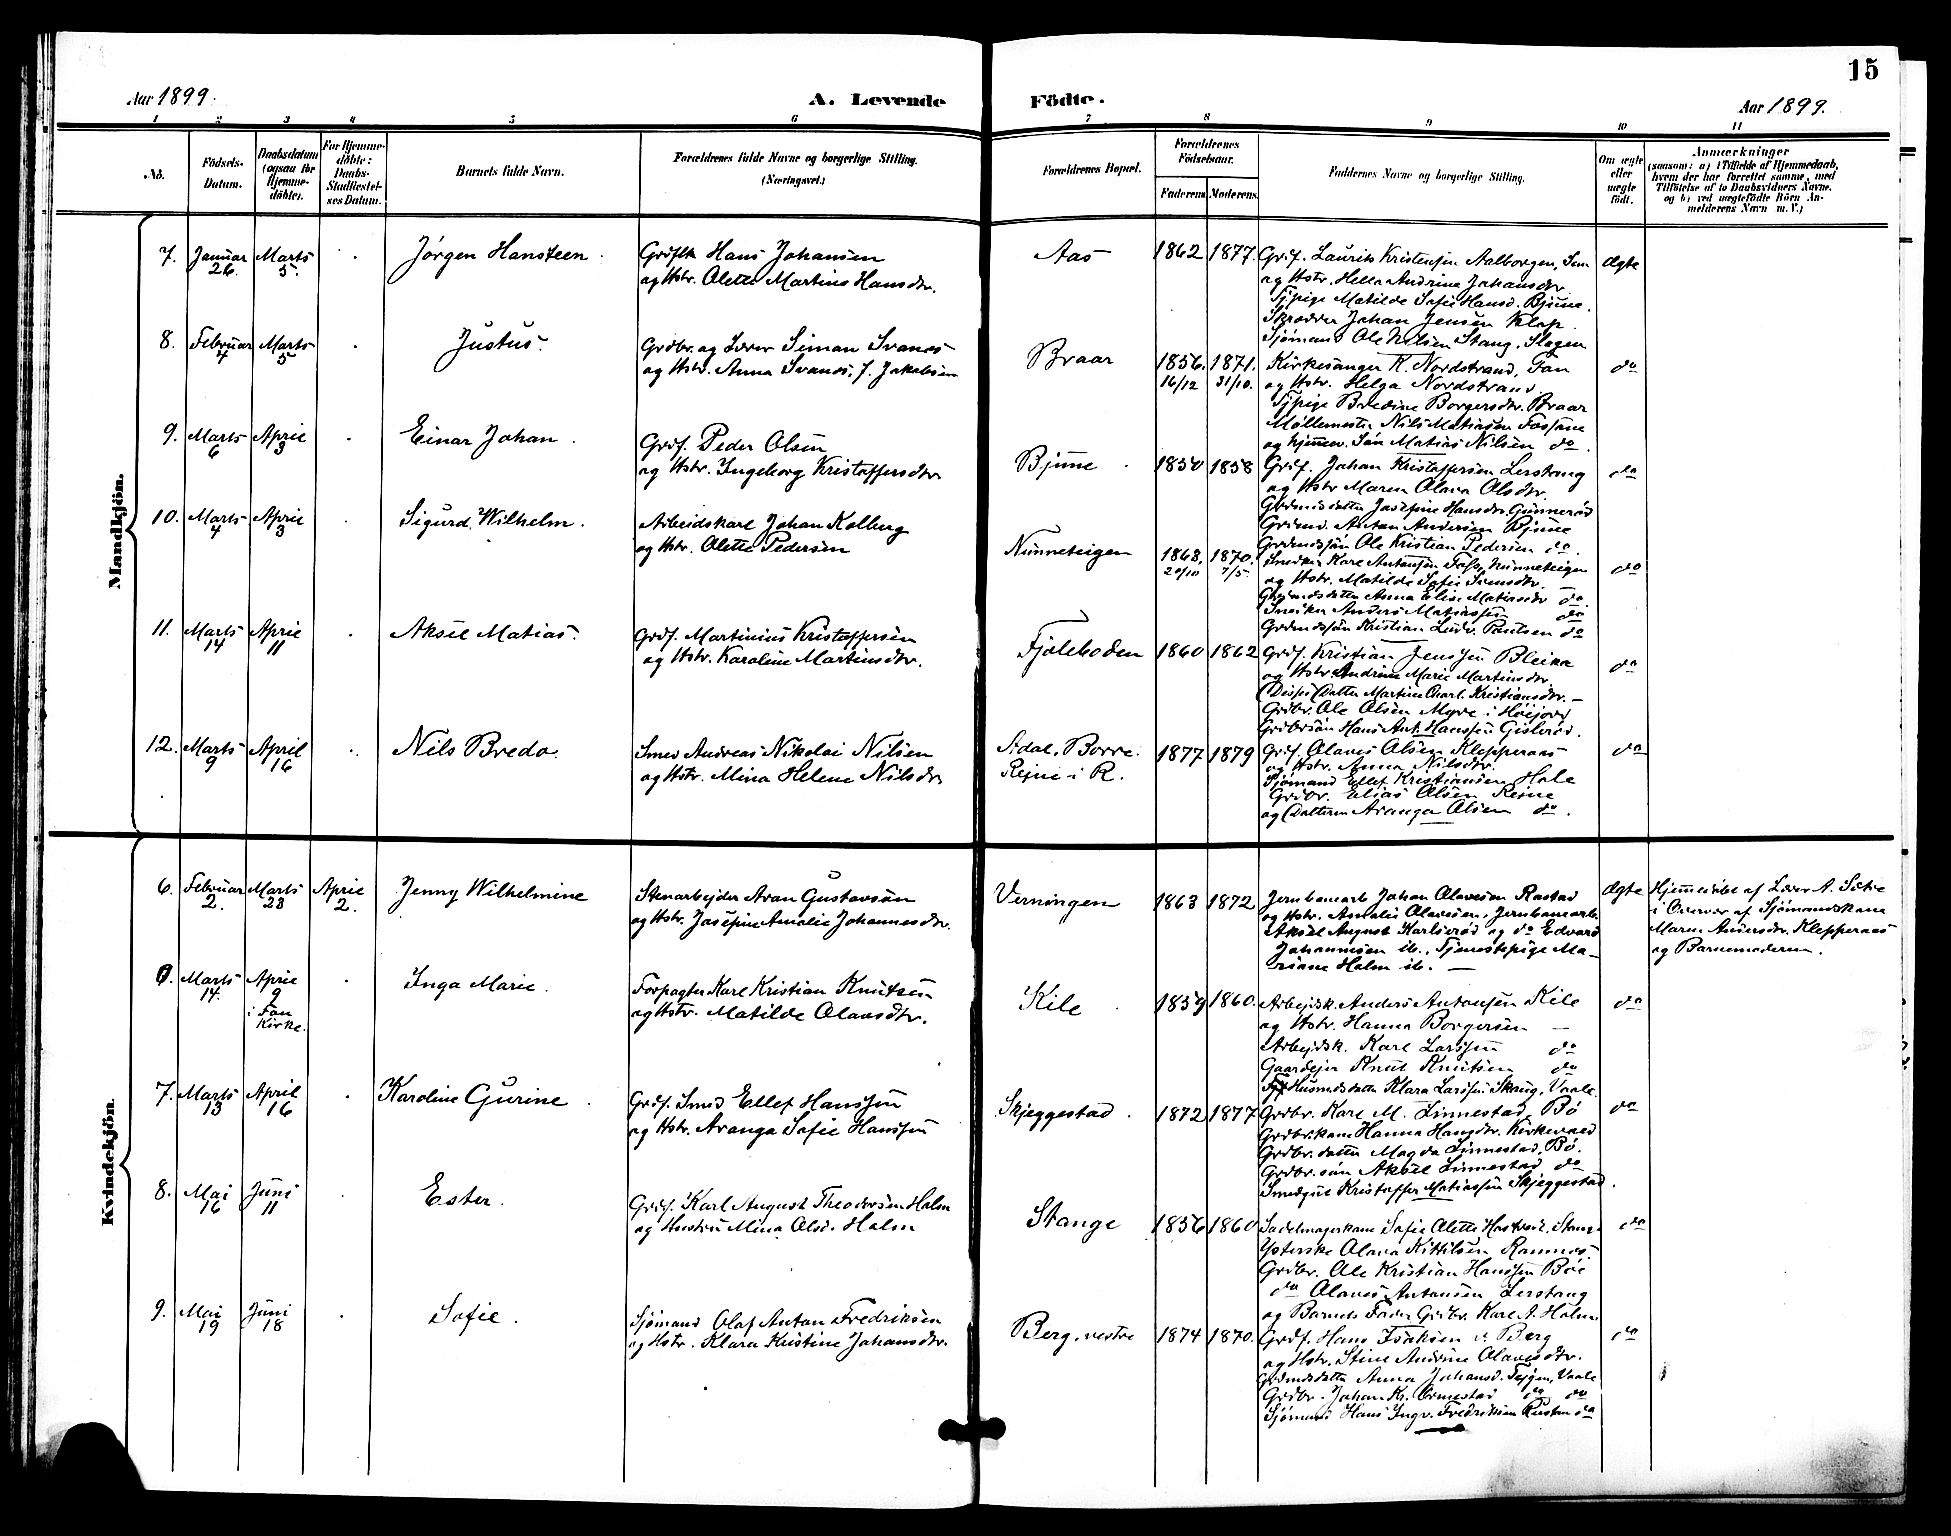 15
Aar 1899.
A. Levende
Födte.
Aar 1899.
1
2
3
4
5
6
7
8
9
10
11
No.
Födsels-
Datum.
Daabsdatum
(ogsaa for
Hjemme-
döbte).
For Hjemme-
döbte:
Daabs-
Stadfæstel-
ses Datum.
Barnets fulde Navn.
Forældrenes fulde Navne og borgerlige Stilling.
(Næringsvei.)
Forældrenes Bopæl.
Forældrenes
Födselsaar.
Faderens
Moderens.
Faddernes Navne og borgerlige Stilling.
Om ægte
eller
uægte
födt.
Anmærkninger
(saasom: a) i Tilfælde af Hjemmedaab,
hvem der har forrettet samme, med
Tilföielse af to Daabsvidners Navne,
og b) ved uægtefödte Börn An-
melderens Navn m. V.)
Mandkjön.
7. Januar 26. Marts 5. Jørgen Hansteen.
Hans Johansen
og Hstr. Olette Martine Hansdtr.
Aas 1862 1877.
Grdf. Laurits Kristensen Aalborgen, Sem
og Hstr. Hella Andrine Johansdtr.
Tjpige Matilde Sofie Hansd. Bjune.
Skrædder Johan Jensen Klop.
Sjømand Ole Nilsen Stang, Slagen
Ægte
8. Februar 4 Marts 5 Justus.
Grdbr. og Lærer Simon Svanes
og Hstr. Anna Svanes, f. Jakobsen
Braar 1856. 16/12 1871. 31/10.
Kirkesanger K. Nordstrand, Fon
og Hstr. Helga Nordstrand
Tjpige Bredine Borgersdtr. Braar
Møllemester Nils Matiasen Fossane
og hjemmev. Søn Matias Nilsen do.
do
9. Marts 6 April 3 Einar Johan.
Grdf. Peder Olsen
og Hstr. Ingeborg Kristoffersdtr
Bjune 1850 1858
Grdf. Johan Kristoffersen Lerstang
og Hstr Maren Olava Olsdtr.
Grdmdsdatter Josefine Hansdtr. Gunnerød
Grdmd. Anton Andersen Bjune
Grdmdssøn Ole Kristian Pedersen do.
do
10. Marts 4 April 3 Sigurd Wilhelm.
Arbeidskarl Johan Kolberg
og Hstr. Olette Pedersen
Nunneteigen 1868. 20/10 1870. 7/5.
Karl Antonsen Nunneteigen
og Hstr. Matilde Sofie Svensdtr.
Grdmdsdatter Anna Elise Matiasdtr do
Sneiker Anders Matiassen do
Grdmdssøn Kristian Ludv. Paulsen do
do
11. Marts 14 April 11 Aksel Matias.
Grdf. Martinius Kristoffersen
og Hstr. Karoline Martinsdtr.
Fjøleboden 1860 1862
Grdf. Kristian Jenssen Bleika
og Hstr Andrine Marie Martinsdtr.
Datter Martine Charl. Kristiansdtr. –
Grdbr. Ole Olsen Myre i Høijord
Grdbrsøn Hans Ant. Hanssen Gislerød.
do
12. Marts 9 April 16 Nils Bredo.
Smed Andreas Nikolai Nilsen
og Hstr. Mina Helene Nilsdtr
Borre.
Reine i R.
1877 1879
Grdf. Olaves Olsen Klepperaas
og Hstr. Anna Nilsdtr.
Sjømand Ellef Kristiansen Hole
Grdbr. Elias Olsen Reine
og Datteren Aranga Olsen do.
do
Kvindekjön.
6. Februar 2. Marts 23 April 2. Jenny Wilhelmine
Stenarbejder Aron Gustavsøn
og Hstr. Josefine Amalie Johannesdtr.
Verningen 1863 1872
Jernbanearb Johan Olavesen Rastad
og Hstr. Amalie Olavesen, Jernbanearb.
Aksel August Karlserød og do Edvard
Johannesen ib., Tjenestepige Ma-
riane Holm ib. –
Ægte
Hjemmedøbt af Lærer A. Sætre
i Overvær af Sjømandskone
Maren Andersdtr. Klepperaas
og Barnemoderen.
6 Marts 14. April 9 i Fon Kirke. Inga Marie.
Forpagter Karl Kristian Knutsen
og Hstr. Matilde Olavesdtr.
Kile 1859 1860.
Arbejdsk. Anders Antonsen Kile
og Hstr. Hanna Borgersen –
Arbejdsk. Karl Larssen do
Gaardejer Knut Knutsen do
Husmdsdatter Klara Larssen Skaug, Vaale.
do
7. Marts 13 April 16 Karoline Gurine.
Grdf. Smed Ellef Hanssen
og Hstr. Aranga Sofie Hanssen
Skjeggestad. 1872 1877
Grdbr. Karl M. Linnestad, Bø
Grdbr.kone Hanna Hansdtr. Kirkevold
Grdbr. datter Magda Linnestad, Bø.
Grdbr. søn Aksel Linnestad do
Smedgut Kristoffer Matiassen Skjeggestad.
do
8. Mai 16 Juni 11 Ester.
Grdf. Karl August Theodorsen Holm
og Hustru Mina Olsd. Holm
Stange 1856 1860
Sadelmagerkone Sofie Olette
Ysterske Olava Kittilsen Ramnes.
Grdbr. Ole Kristian Hanssen Bøe
do Olaves Antonsen Lerstang
og Barnets Fader Grdbr. Karl A. Holm
do
9. Mai 19 Juni 18 Sofie.
Sjømand Olaf Anton Fredriksen
og Hstr. Klara Kristine Johansdtr.
Berg, vestre 1874 1870.
Grdf. Hans Isaksen v. Berg
og Hstr. Stine Andrine Olavesdtr.
Grdmdsdatter Anna Johansd. Vaale
Grdbr. Johan Kr. Ormestad do do
Sjømand Hans Ingv. Fredriksen do
do